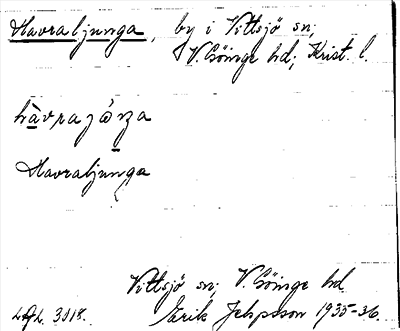 Havraljunga, by i Vittsjö sn,
V. Göinge hd; Krist. l.
Havraljunga
Vittsjö sn; V. Göinge hd.
Erik Jeppsson 1935-36.